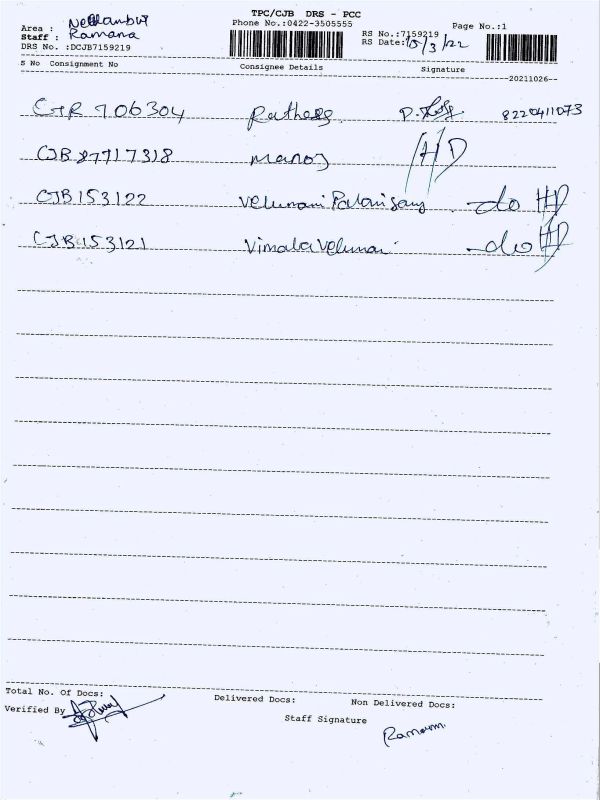 TPC/CJB DRS - PCC
Area : Neelambur Phone No.:0422-3505555 Page No.:1
Staff : Ramana RS No.:7159219
DRS No. :DCJB7159219 RS Date: 15/3/22
S No Consignment No Consignee Details Signature
20211026
CTR 706304 8220411073
CJB 87717318 Manoj HD
CJB 153122 do HD
CJB 153121 do HD
Total No. Of Docs: Delivered Docs: Non Delivered Docs:
Verified By
Staff Signature